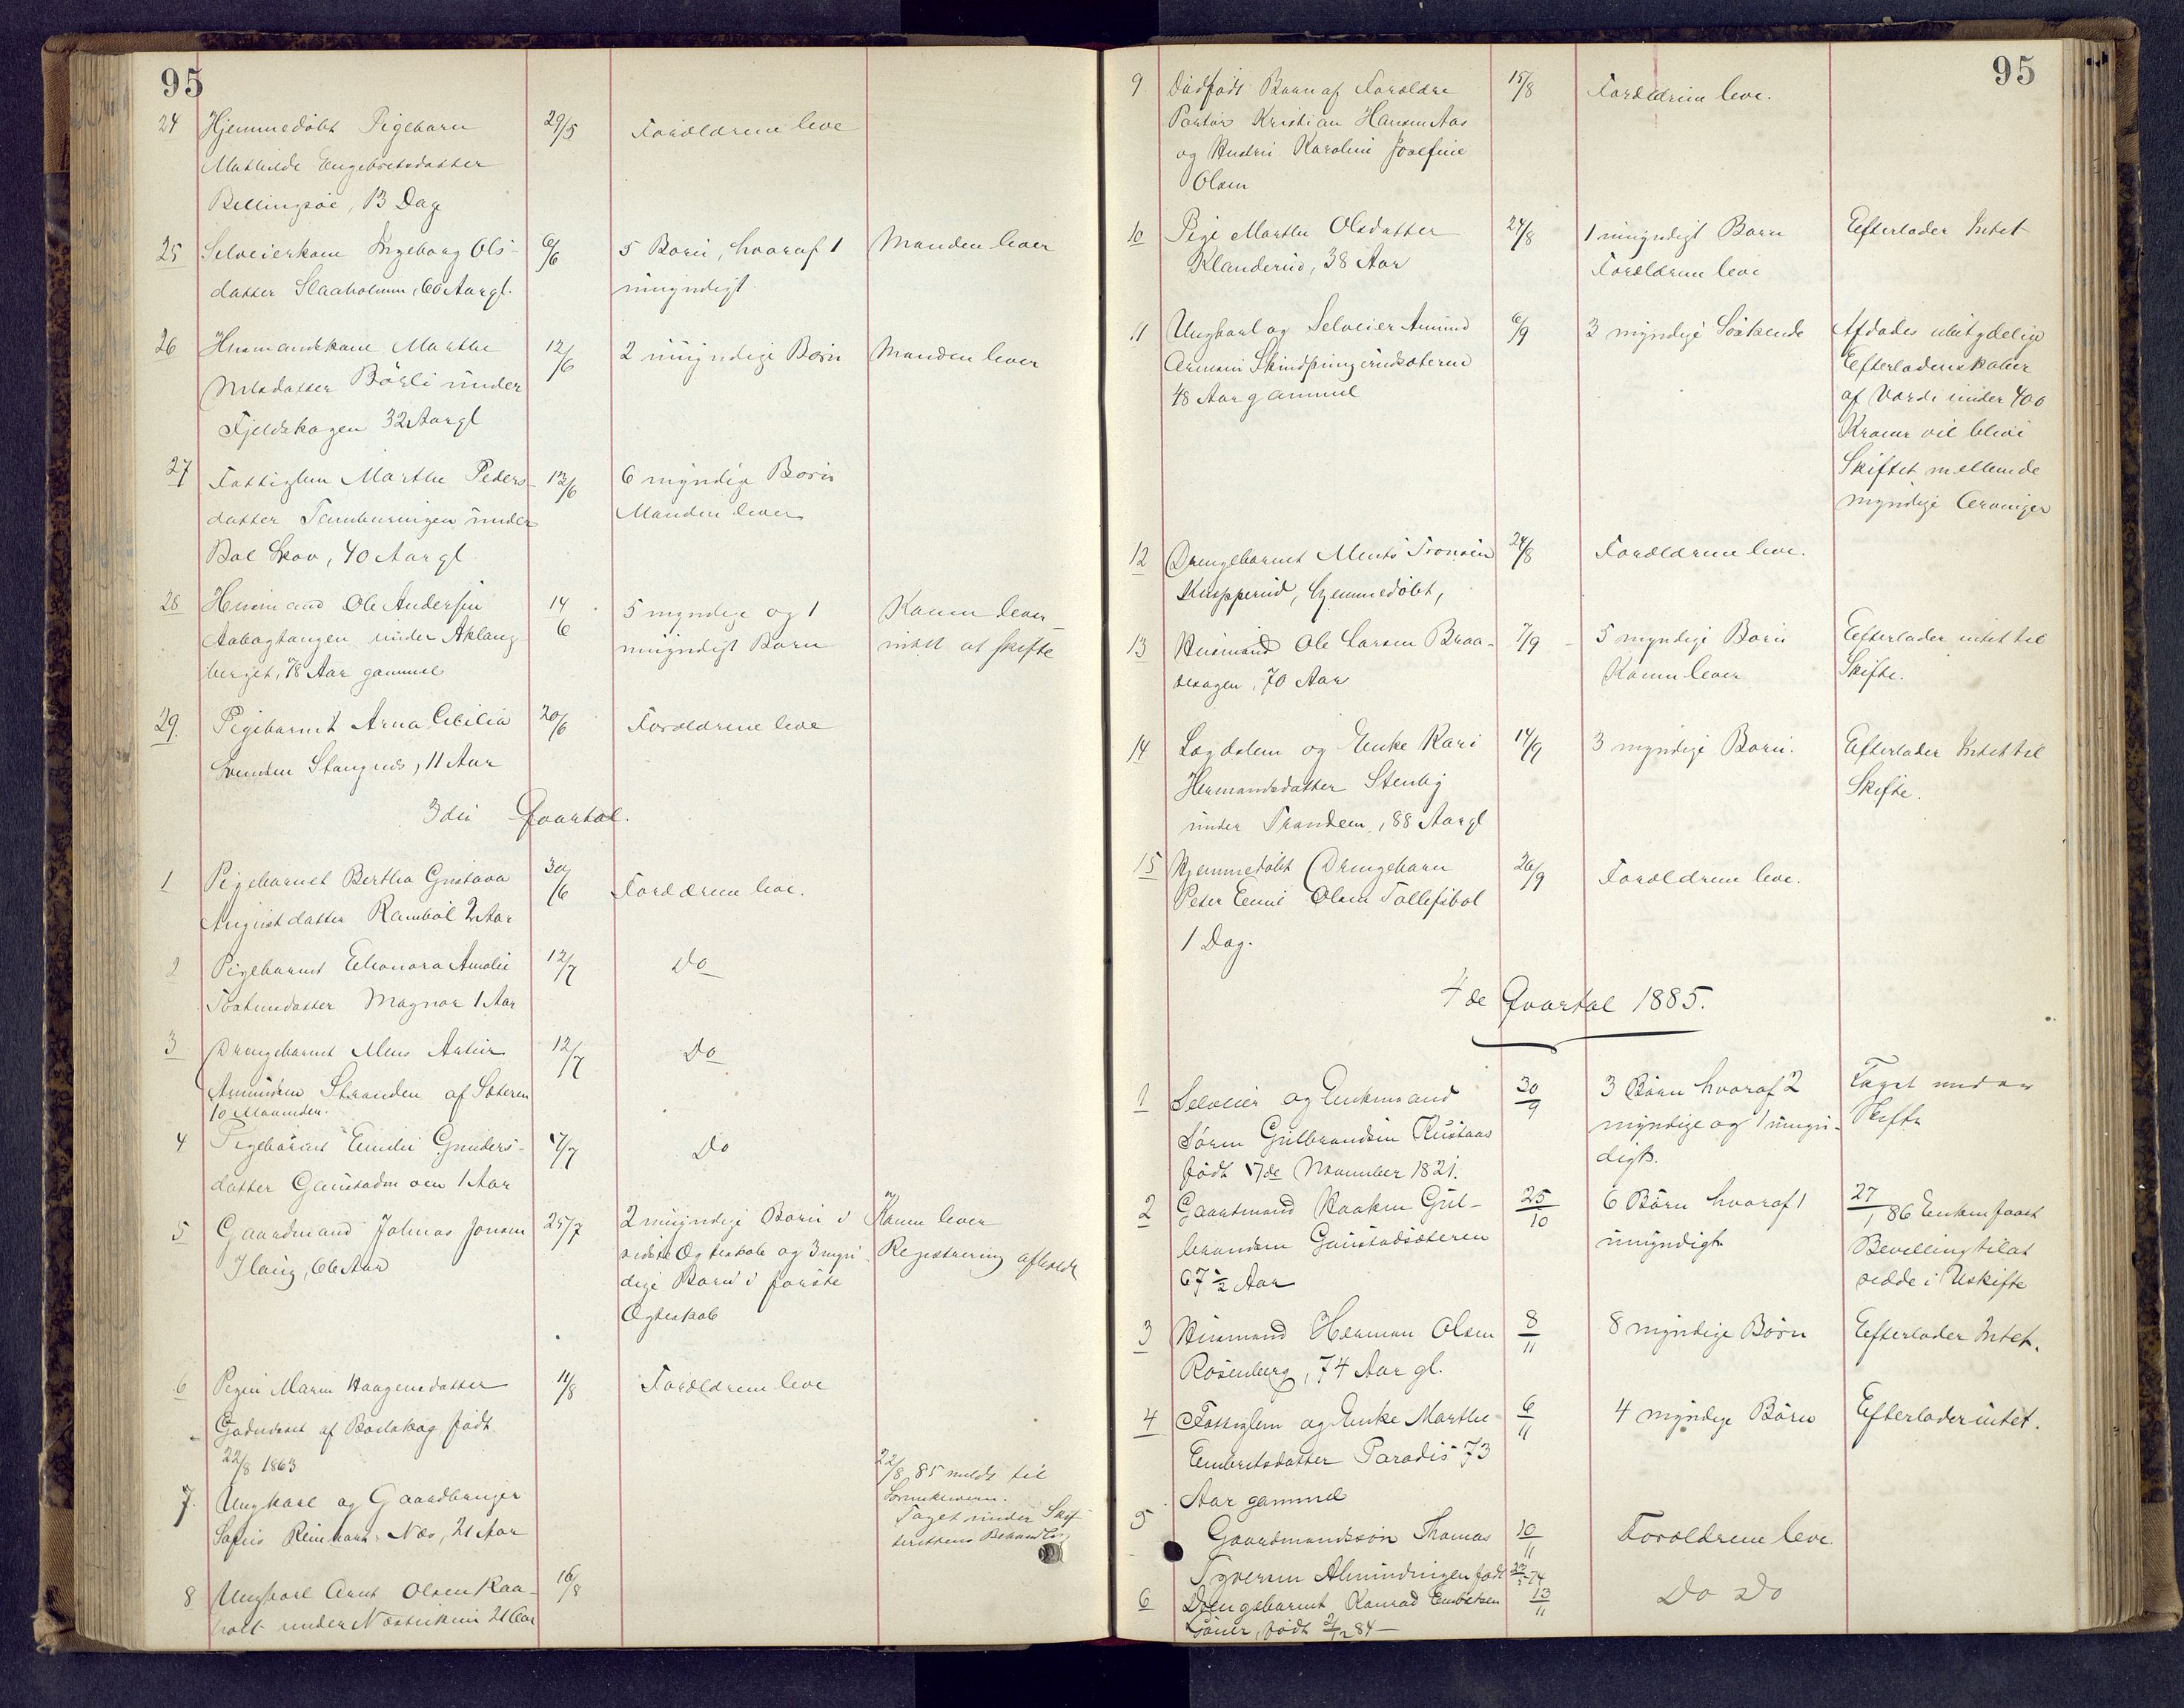 95
24 Hjemmedøbt Pigebarn 29/5 Forældrene leve
Mathilde Engebretsdatter
Bellingsøe, 13 Dag
25 Selveierkone Ingeborg Ols- 6/6 5 Børn, hvoraf 1 Manden lever
datter Slaaholmen, 60 Aar gl. umyndigt
26 Husmandskone Marthe 12/6 2 umyndige Børn Manden lever
Nilsdatter Børli under
Fjeldskogen 32 Aar gl
27 Fattiglem Marthe Peders- 13/6 6 myndige Børn
datter under Manden lever
Bøe Skov, 40 Aar gl.
28 Husmand Ole Andersen 14/6 5 myndige og 1 Konen lever
Aabogtangen under Aklang umyndigt Barn intet at skifte
berget, 78 Aar gammel
29. Pigebarnet Anna Cecilia 20/6 Forældrene leve
Svendsen Stangnes, 11 Aar
3die Qvartal.
1 Pigebarnet Bertha Gustava 30/6 Forældrene leve.
Augustdatter Rambøl 2 Aar
2 Pigebarnet Eleonora Amalie 12/7 Do
Tostensdatter Magnor 1 Aar
3 Drengebarnet Mens Anton 12/7 Do
Amundsen Stranden af Sæteren
10 Maaneder.
4 Pigebarnet Emilie Gunders- 17/7 Do
datter 1 Aar
5 Gaardmand Johnas Jonsen 25/7 2 umyndige Børn i Konen lever
Haug, 66 Aar sidste Ægteskab og 3 myn- Registrering afholdt
dige Børn i første
Ægteskab
6 Pigen Maren Haagensdatter 11/8 Forældrene leve
af født
22/8 1863
7. Ungkarl og Gaardbruger 22/8 85 meldt til
Sofus Reinhart Næs, 21 Aar
Taget under Skif-
terettens Behandling
8 Ungkarl Arnt Olsen Kaa- 16/8
holt under 21 Aar
95
9 Dødfødt Barn af Forældre 15/8 Forældrene leve.
Kristian Hansen Aas
og Hustru Karoline Josefine
Olsen
10 Pige Marthe Olsdatter 24/8 1 umyndigt Barn Efterlader Intet
Klanderud, 38 Aar Forældrene leve
11 Ungkarl og Selveier Amund 6/9 3 myndige Søskende Afdødes ubetydelige
Arnesen Efterladenskaber
48 Aar gammel af Værdi under 400
Kroner vil blive
Skiftet mellem de
myndige Arvinger
12 Drengebarnet Ments Tronsen 24/8 Forældrene leve.
Knapperud, hjemmedøbt,
13 Husmand Ole Larsen Braa- 7/9 5 myndige Børn Efterlader intet til
, 70 Aar Konen lever Skifte.
14 Lægdslem og Enke Kari 14/9 3 myndige Børn. Efterlader Intet til
Hermandsdatter Stenby Skifte.
under Trandem, 88 Aar gl
15 Hjemmedøbt Drengebarn 26/9 Forældrene leve.
Peter Emil Olsen Tollefsbøl
1 Dag.
4de Qvartal 1885.
1 Selveier og Enkemand 30/9 3 Børn hvoraf 2 Taget under
Søren Gulbrandsen Rustaas myndige og 1 umyn- Skifte
født 17de November 1821. digt.
2 Gaardmand Haaken Gul- 25/10 6 Børn hvoraf 1 27/1 86 Enken faaet
brandsen Gaustadsæteren umyndigt Bevilling til at
67 1/2 Aar sidde i Uskifte
3 Husmand Herman Olsen 8/11 8 myndige Børn Efterlader Intet.
Rosenberg, 74 Aar gl.
4 Fattiglem og Enke Marthe 6/11 4 myndige Børn Efterlader intet.
Embretsdatter Paradis 73
Aar gammel
5 Gaardmandssøn Thomas 10/11 Forældrene leve
Syversen Almindingen født 74
6 Drengebarnet Konrad Embretsen 13/11 Do Do
født 2/12 84